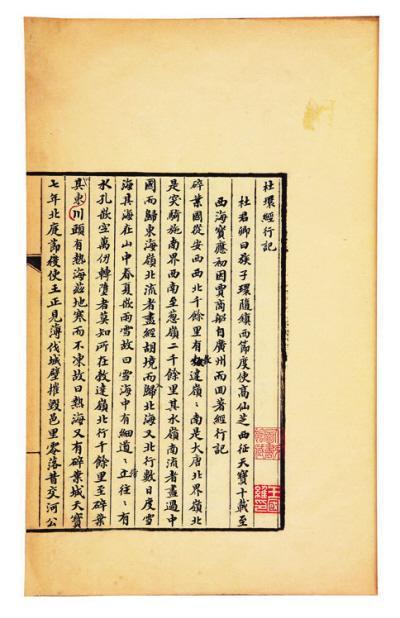 杜環經行記
杜君卿曰族子環隨鎮西節度使高仙芝西征天寶十載至
西海寶應初因賈商船自廣州而回著經行記
碎葉國從安西西北千餘里有達嶺〻南是大唐北界嶺北
是突騎施南界西南至葱嶺二千餘里其水嶺南流者盡過中
國而歸東海嶺北流者盡經胡境而歸北海又北行數日度雪
海其海在山中春夏嵌雨雪故曰雪海中有細道〻往〻有
水孔嵌空萬仞轉墮者莫知所在敦達嶺北行千餘里至碎葉
其東川頭有熱海茲地寒而不凍故曰熱海又有碎葉城天寶
七年北庭節度使王正見薄伐城壁摧毀邑里零落昔交河公
王國維印